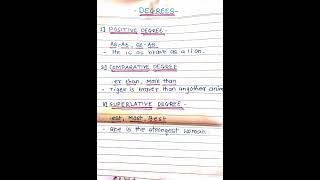 - DEGREES -
1] POSITIVE DEGREE -
AS-AS, SO-AS.
- He is as brave as a lion.
2] COMPARATIVE DEGREE
er than, more than
- Tiger is braver than anyother anim
3] SUPERLATIVE DEGREE -
est, Most, Best
- she is the strongest woman